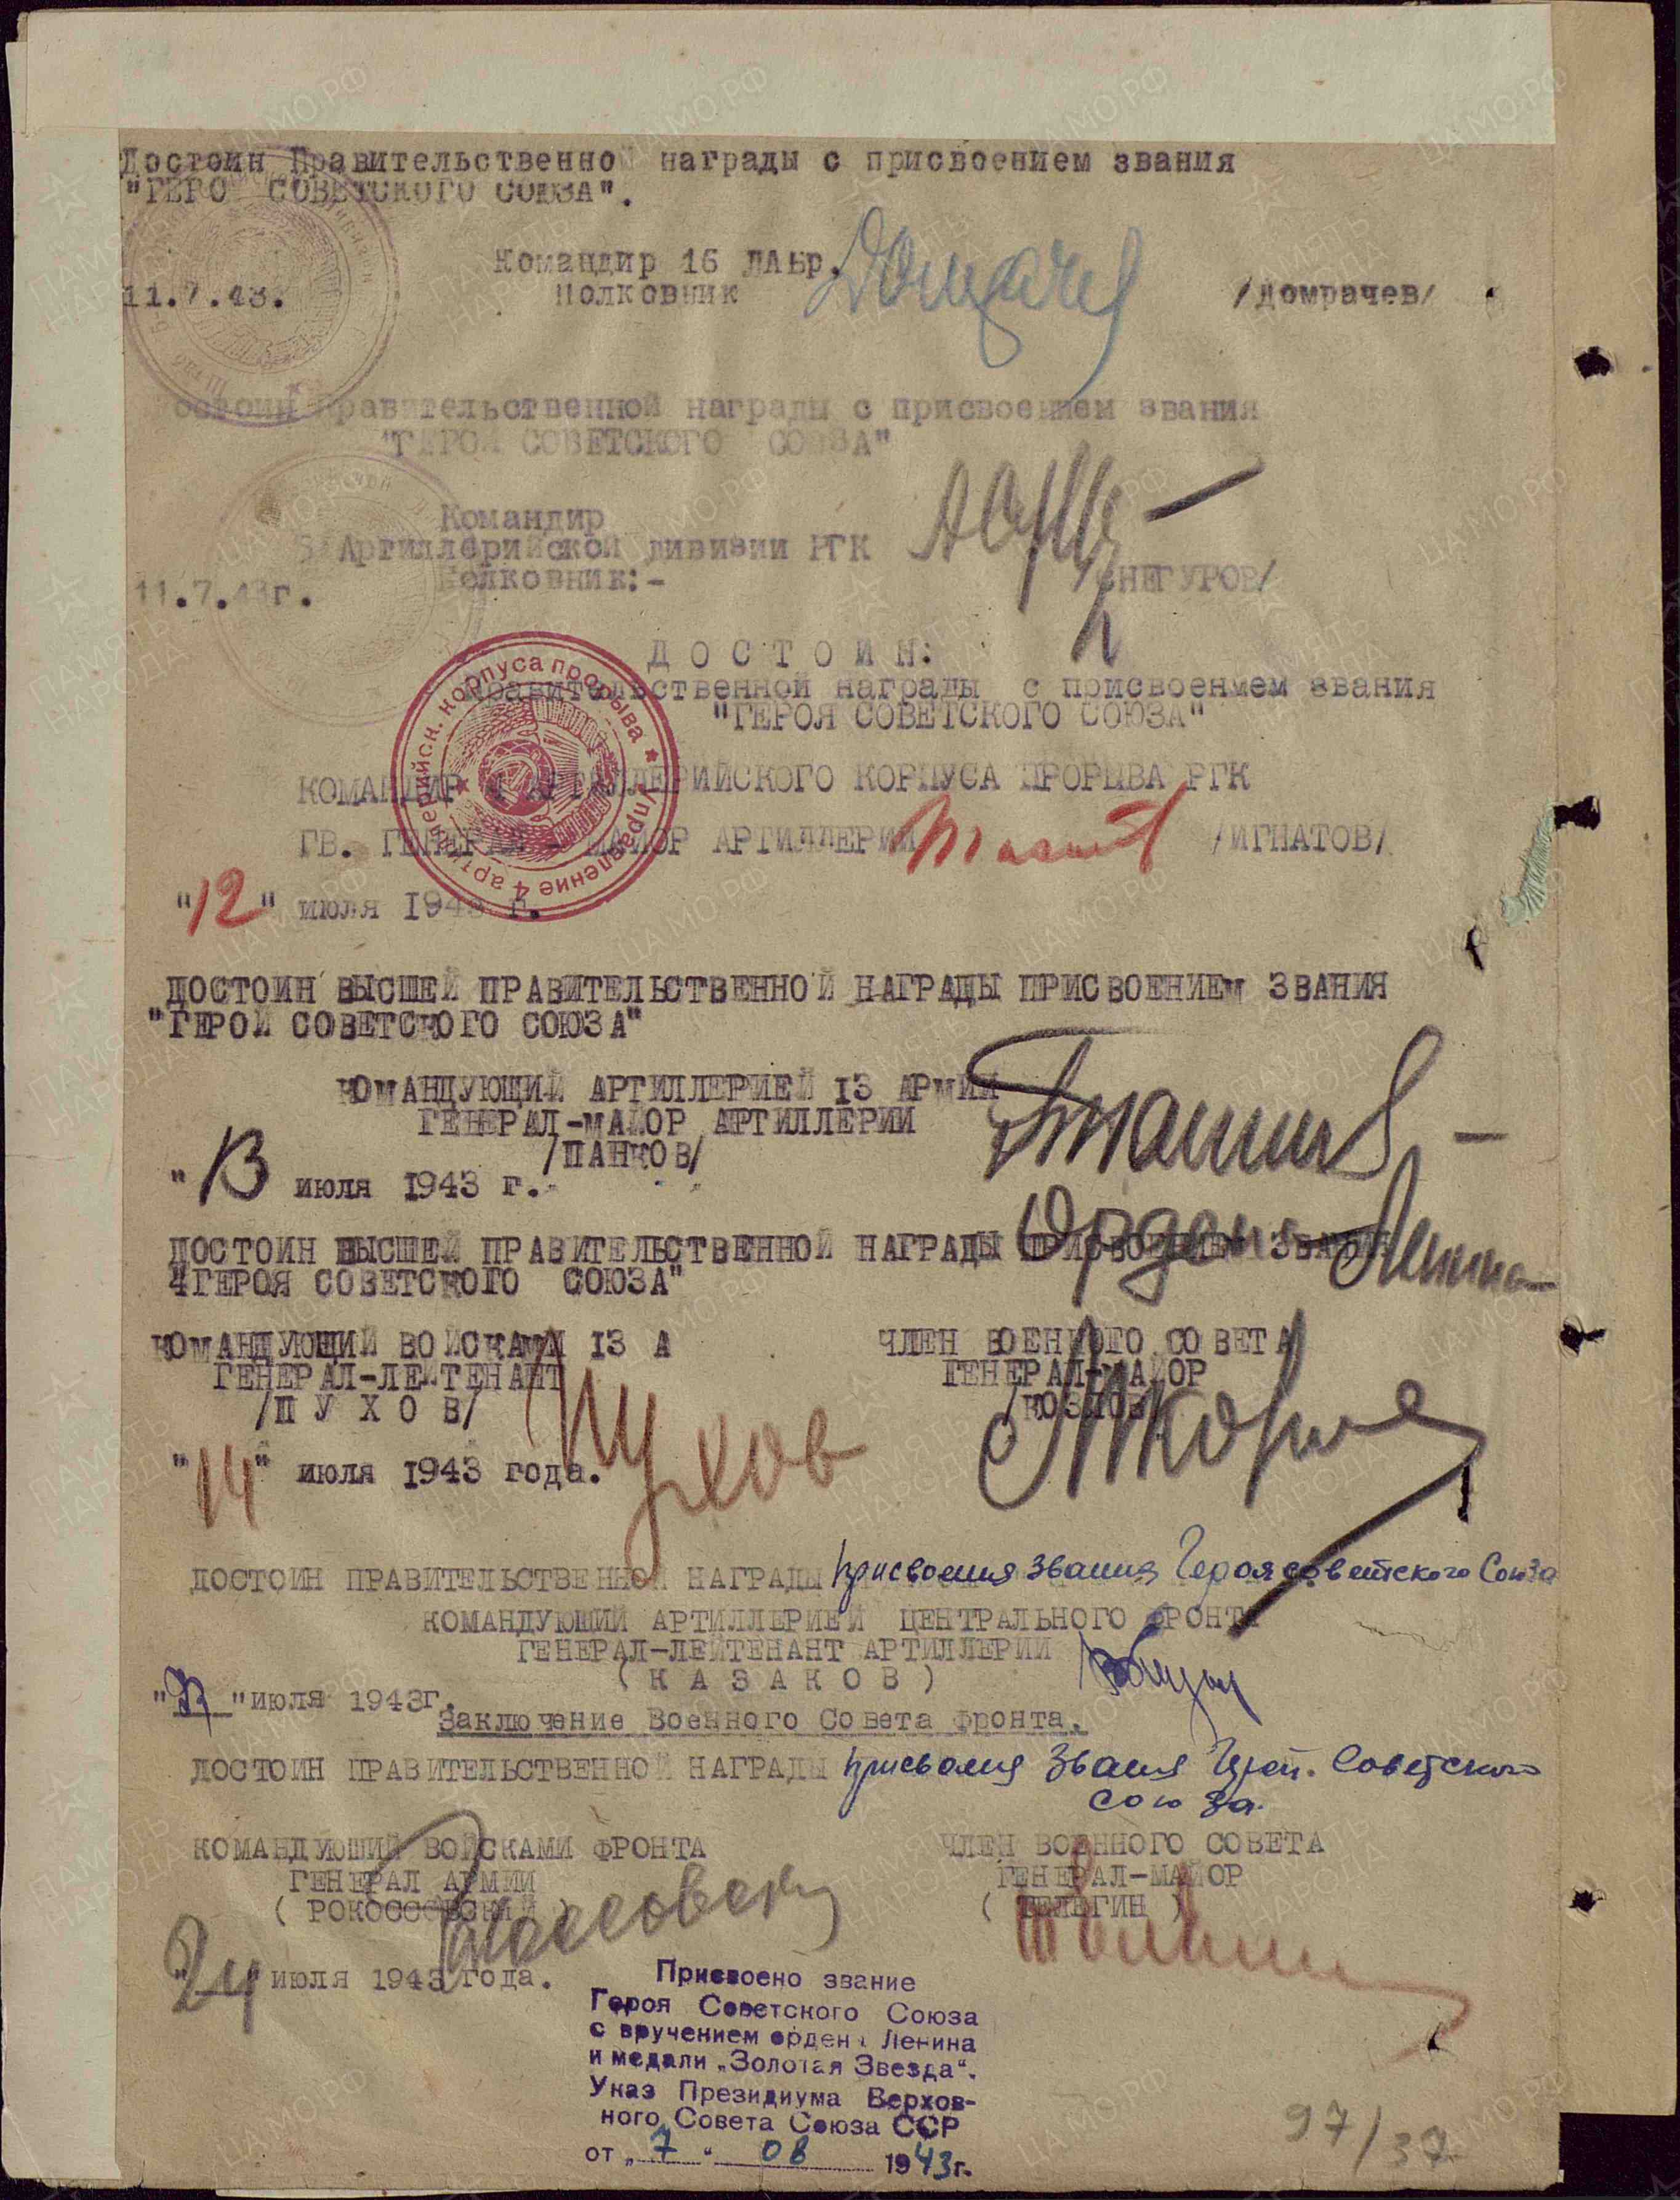 Достоин Правительственной награды с присвоением звания
"ГЕРО СОВЕТСКОГО СОЮЗА".
Командир 16 ЛАБр.
11.7.43. Полковник /Домрачев/
остоин Правительственной награды с присвоением звания
"ГЕРОЯ СОВЕТСКОГО СОЮЗА"
Командир
5 Артиллерийской дивизии РГК
11.7.43г. Полковник:- СНЕГУРОВ/
Д О С Т О И Н:
Правительственной награды с присвоением звания
"ГЕРОЯ СОВЕТСКОГО СОЮЗА"
Управление 4 артиллерийсн. корпуса прорыва
КОМАНДИР 4 АРТИЛЛЕРИЙСКОГО КОРПУСА ПРОРЫВА РГК
ГВ. ГЕНЕРАЛ - МАЙОР АРТИЛЛЕРИИ /ИГНАТОВ/
"12" июля 1943 г.
ДОСТОИН ВЫСШЕЙ ПРАВИТЕЛЬСТВЕННОЙ НАГРАДЫ ПРИСВОЕНИЕМ ЗВАНИЯ
"ГЕРОЙ СОВЕТСКОГО СОЮЗА"
КОМАНДУЮЩИЙ АРТИЛЛЕРИЕЙ 13 АРМИИ
ГЕНЕРАЛ-МАЙОР АРТИЛЛЕРИИ
/ПАНКОВ/
"13 июля 1943 г.
Ордена Ленина
ДОСТОИН ВЫСШЕЙ ПРАВИТЕЛЬСТВЕННОЙ НАГРАДЫ ПРИСВОЕНИЕМ ЗВАНИЯ
4ГЕРОЯ СОВЕТСКОГО СОЮЗА"
КОМАНДУЮЩИЙ ВОЙСКАМИ 13 А ЧЛЕН ВОЕННОГО СОВЕТА
ГЕНЕРАЛ-ЛЕЙТЕНАНТ ГЕНЕРАЛ-МАЙОР
/П У Х О В/ Пухов /КОЗЛОВ/
"14" июля 1943 года.
ДОСТОИН ПРАВИТЕЛЬСТВЕННОЙ НАГРАДЫ присвоения звания Героя советского Союза
КОМАНДУЮЩИЙ АРТИЛЛЕРИЕЙ ЦЕНТРАЛЬНОГО ФРОНТА
ГЕНЕРАЛ-ЛЕЙТЕНАНТ АРТИЛЛЕРИИ
( К А З А К О В )
" "июля 1943г.
Заключение Военного Совета фронта.
ДОСТОИН ПРАВИТЕЛЬСТВЕННОЙ НАГРАДЫ присвоения звания Героя Советского
Союза.
КОМАНДУЮЩИЙ ВОЙСКАМИ ФРОНТА ЧЛЕН ВОЕННОГО СОВЕТА
ГЕНЕРАЛ АРМИИ ГЕНЕРАЛ-МАЙОР
( РОКОССОВСКИЙ ) ( ТЕЛЕГИН )
"24" июля 1943 года.
Присвоено звание
Героя Советского Союза
с вручением ордена Ленина
и медали „Золотая Звезда".
Указ Президиума Верхов-
ного Совета Союза ССР
от „7" 08 1943г.
97/37